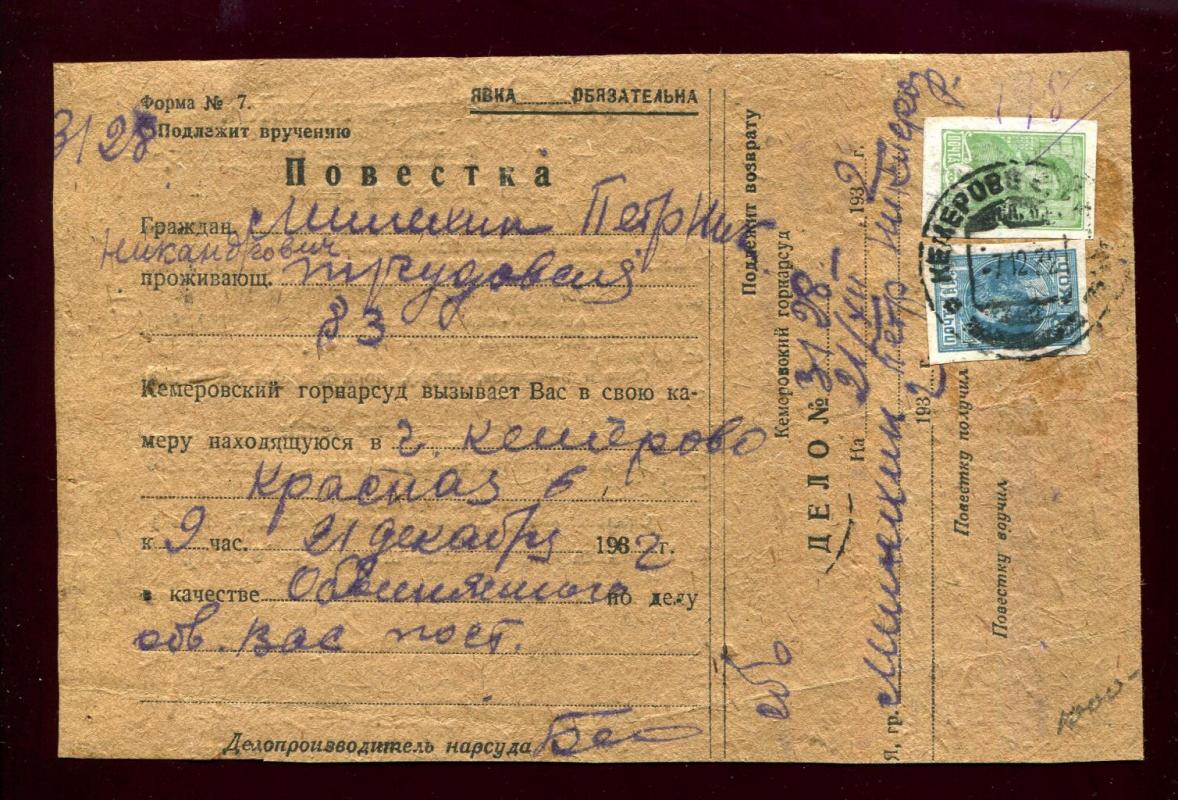 Форма № 7.
ЯВКА ОБЯЗАТЕЛЬНА
3128
Подлежит вручению
Повестка
Граждан. Петр Ник
Никандрович
проживающ. трудовая
83
Кемеровский горнарсуд вызывает Вас в свою ка-
меру находящуюся в г. Кемерово
Красная 6
к 9 час. 21 декабря 1932 г.
в качестве Обвиняемого по делу
обв. Вас пост.
Делопроизводитель нарсуда
Подлежит возврату
Кемеровский горнарсуд
ДЕЛО № 3128
На 21/XII 1932 г.
Я, гр. Петр
1932 г.
Повестку получил
Повестку вручил
КЕМЕРОВО
-7.12.32
ПОЧТА
ПОЧТА СССР
КОП